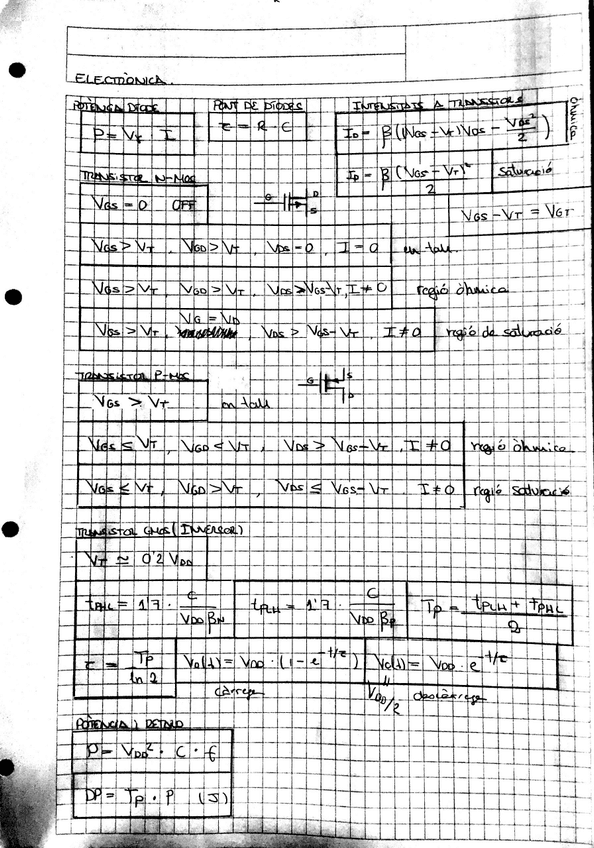 ELECTRÒNICA.
POTÈNCIA DÍODE
P = Vγ · I
PONT DE DÍODES
τ = R · C
INTENSITATS A TRANSISTORS
I_D = β ((V_GS - V_T) V_DS - V_DS²/2) ÒHMICA
I_D = β (V_GS - V_T)²/2 saturació
V_GS - V_T = V_GT
TRANSISTOR N-MOS
V_GS = 0 OFF
G D S
V_GS > V_T, V_GD > V_T, V_DS = 0, I = 0 en tall.
V_GS > V_T, V_GD > V_T, V_DS > V_GS - V_T, I ≠ 0 regió òhmica
V_G = V_D
V_GS > V_T, V_DS > V_GS - V_T, I ≠ 0 regió de saturació
TRANSISTOR P-MOS
V_GS > V_T en tall
G S D
V_GS ≤ V_T, V_GD < V_T, V_DS > V_GS - V_T, I ≠ 0 regió òhmica
V_GS ≤ V_T, V_GD > V_T, V_DS ≤ V_GS - V_T. I ≠ 0 regió saturació
TRANSISTOR CMOS (INVERSOR)
V_T ≃ 0'2 V_DD
t_PHL = 1'7 · C/(V_DD β_N) t_PLH = 1'7 · C/(V_DD β_P) T_P = (t_PLH + t_PHL)/2
τ = T_P/ln 2 V_0(t) = V_DD · (1 - e^(-t/τ)) V_0(t) = V_DD · e^(-t/τ)
càrrega V_DD/2 descàrrega
POTÈNCIA I RETARD
P = V_DD² · C · f
DP = T_P · P (J)